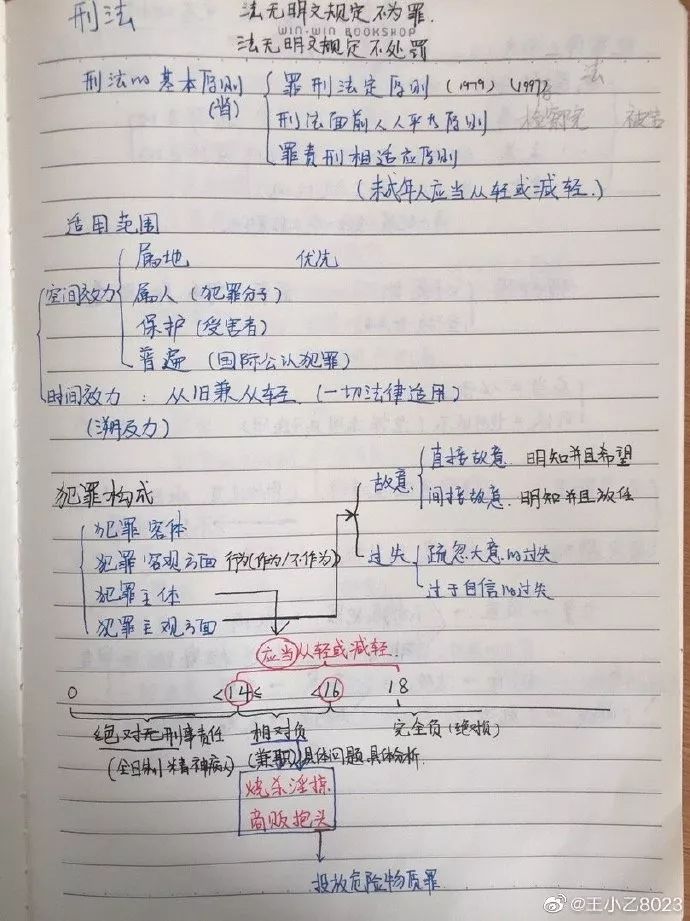 刑法
法无明文规定不为罪.
WIN-WIN BOOKSHOP
法无明文规定不处罚
刑法的基本原则 罪刑法定原则 (1979) (1997) 法
刑法面前人人平等原则 检察院 被告
罪责刑相适应原则
(未成年人应当从轻或减轻.)
适用范围
空间效力 属地 优先
属人 (犯罪分子)
保护 (受害者)
普遍 (国际公认犯罪)
时间效力 : 从旧兼从轻 (一切法律适用)
(溯及力)
故意 直接故意 明知并且希望
间接故意. 明知并且放任
犯罪构成
犯罪客体
犯罪客观方面 行为(作为/不作为) 过失 疏忽大意的过失
犯罪主体 过于自信的过失
犯罪主观方面
应当从轻或减轻.
0 <14≤ <16 18
绝对无刑事责任 相对负 完全负(绝对负)
(全日制 精神病人) (兼职)具体问题具体分析.
烧杀淫掠
商贩抱头
投放危险物质罪
@王小乙8023